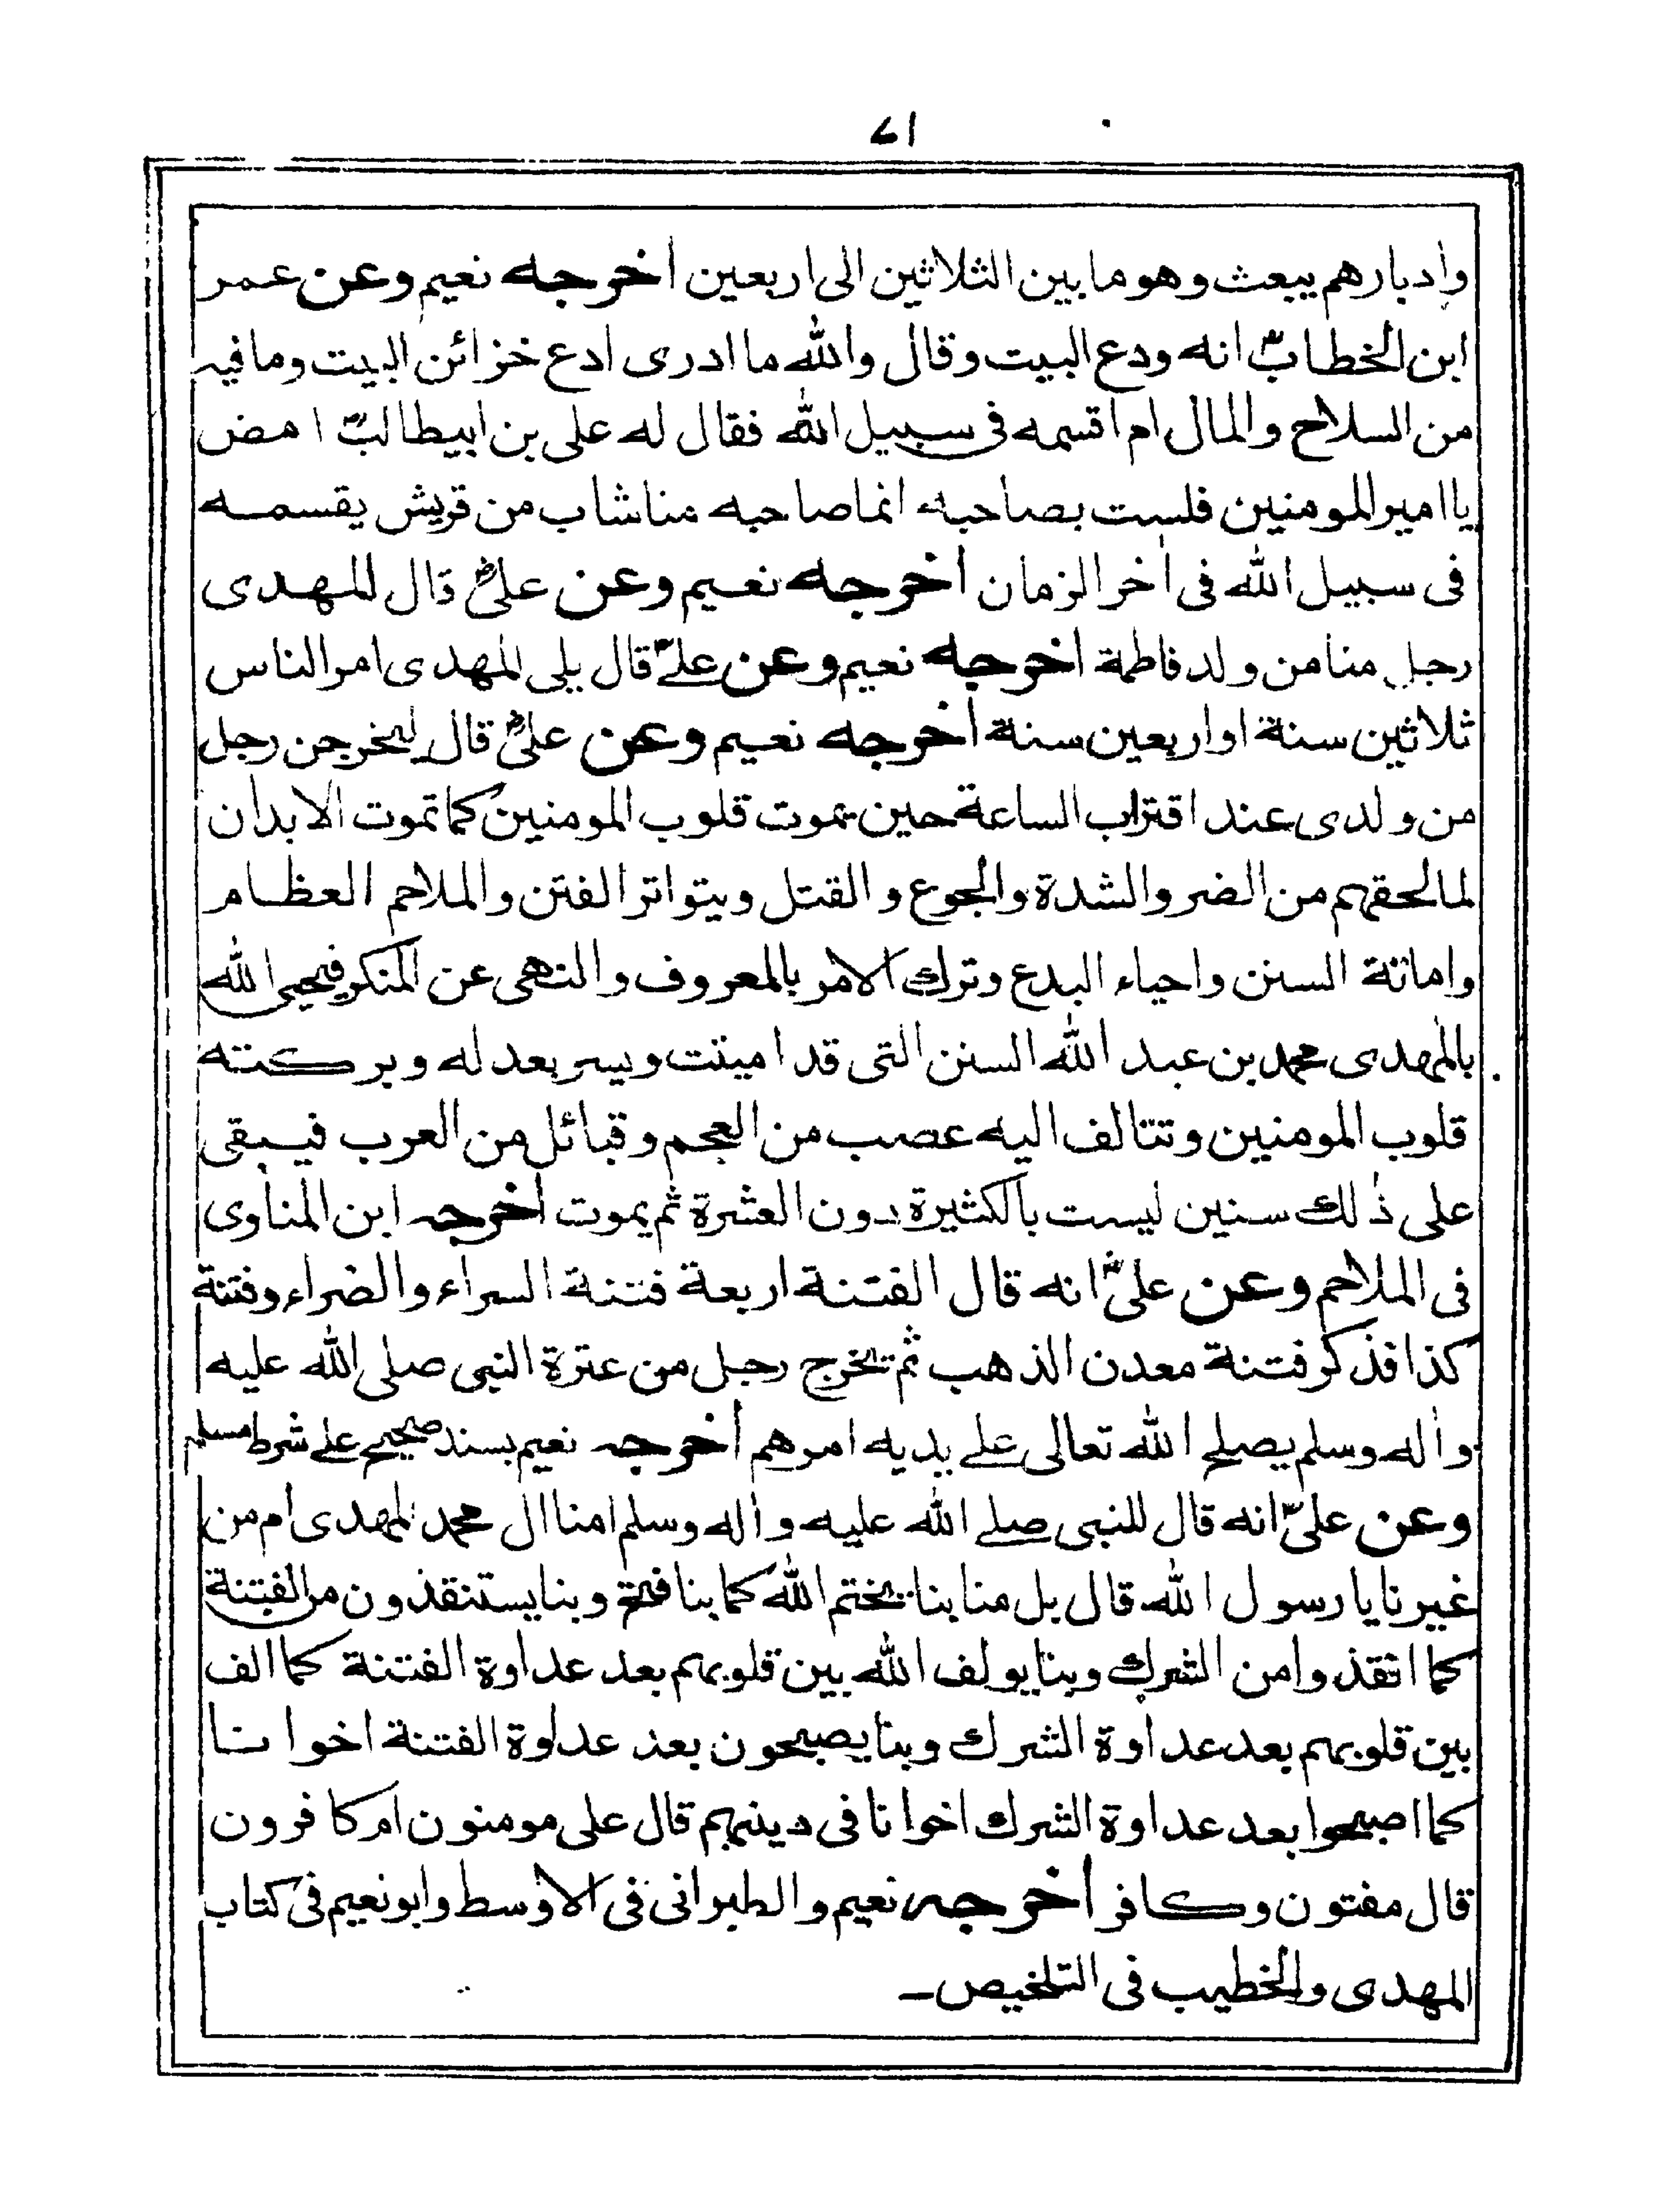 ٧١
وادبارهم يبعث وهو ما بين الثلاثين الى اربعين اخرجه نعيم وعن عمر
ابن الخطابؓ انه ودع البيت وقال والله ما ادرى ادع خزائن البيت وما فيه
من السلاح والمال ام اقسمه فى سبيل الله فقال له على بن ابيطالبؓ امض
يا امير المومنين فلست بصاحبه انما صاحبه منا شاب من قريش يقسمه
فى سبيل الله فى اخر الزمان اخرجه نعيم وعن علىؓ قال المهدى
رجل منا من ولد فاطمة اخرجه نعيم وعن علىؓ قال يلى المهدى امر الناس
ثلاثين سنة او اربعين سنة اخرجه نعيم وعن علىؓ قال ليخرجن رجل
من ولدى عند اقتراب الساعة حين يموت قلوب المومنين كما تموت الابدان
لما لحقهم من الضر والشدة والجوع والقتل ويتواتر الفتن والملاحم العظام
واماتة السنن واحياء البدع وترك الامر بالمعروف والنهى عن المنكر فيحيى الله
بالمهدى محمد بن عبد الله السنن التى قد اميتت ويسر بعدله وبركته
قلوب المومنين وتتالف اليه عصب من العجم وقبائل من العرب فيبقى
على ذلك سنين ليست بالكثيرة دون العشرة ثم يموت اخرجه ابن المناوى
فى الملاحم وعن علىؓ انه قال الفتنة اربعة فتنة السراء والضراء وفتنة
كذا فذكر فتنة معدن الذهب ثم يخرج رجل من عترة النبى صلى الله عليه
واله وسلم يصلح الله تعالى على يديه امرهم اخرجه نعيم بسند صحيح على شرط مسلم
وعن علىؓ انه قال للنبى صلى الله عليه واله وسلم امنا ال محمد المهدى ام من
غيرنا يا رسول الله قال بل منا بنا يختم الله كما بنا فتح وبنا يستنقذون من الفتنة
كما انقذوا من الشرك وبنا يولف الله بين قلوبهم بعد عداوة الفتنة كما الف
بين قلوبهم بعد عداوة الشرك وبنا يصبحون بعد عداوة الفتنة اخوانا
كما اصبحوا بعد عداوة الشرك اخوانا فى دينهم قال على مومنون ام كافرون
قال مفتون وكافر اخرجه نعيم والطبرانى فى الاوسط وابو نعيم فى كتاب
المهدى والخطيب فى التلخيص ـ